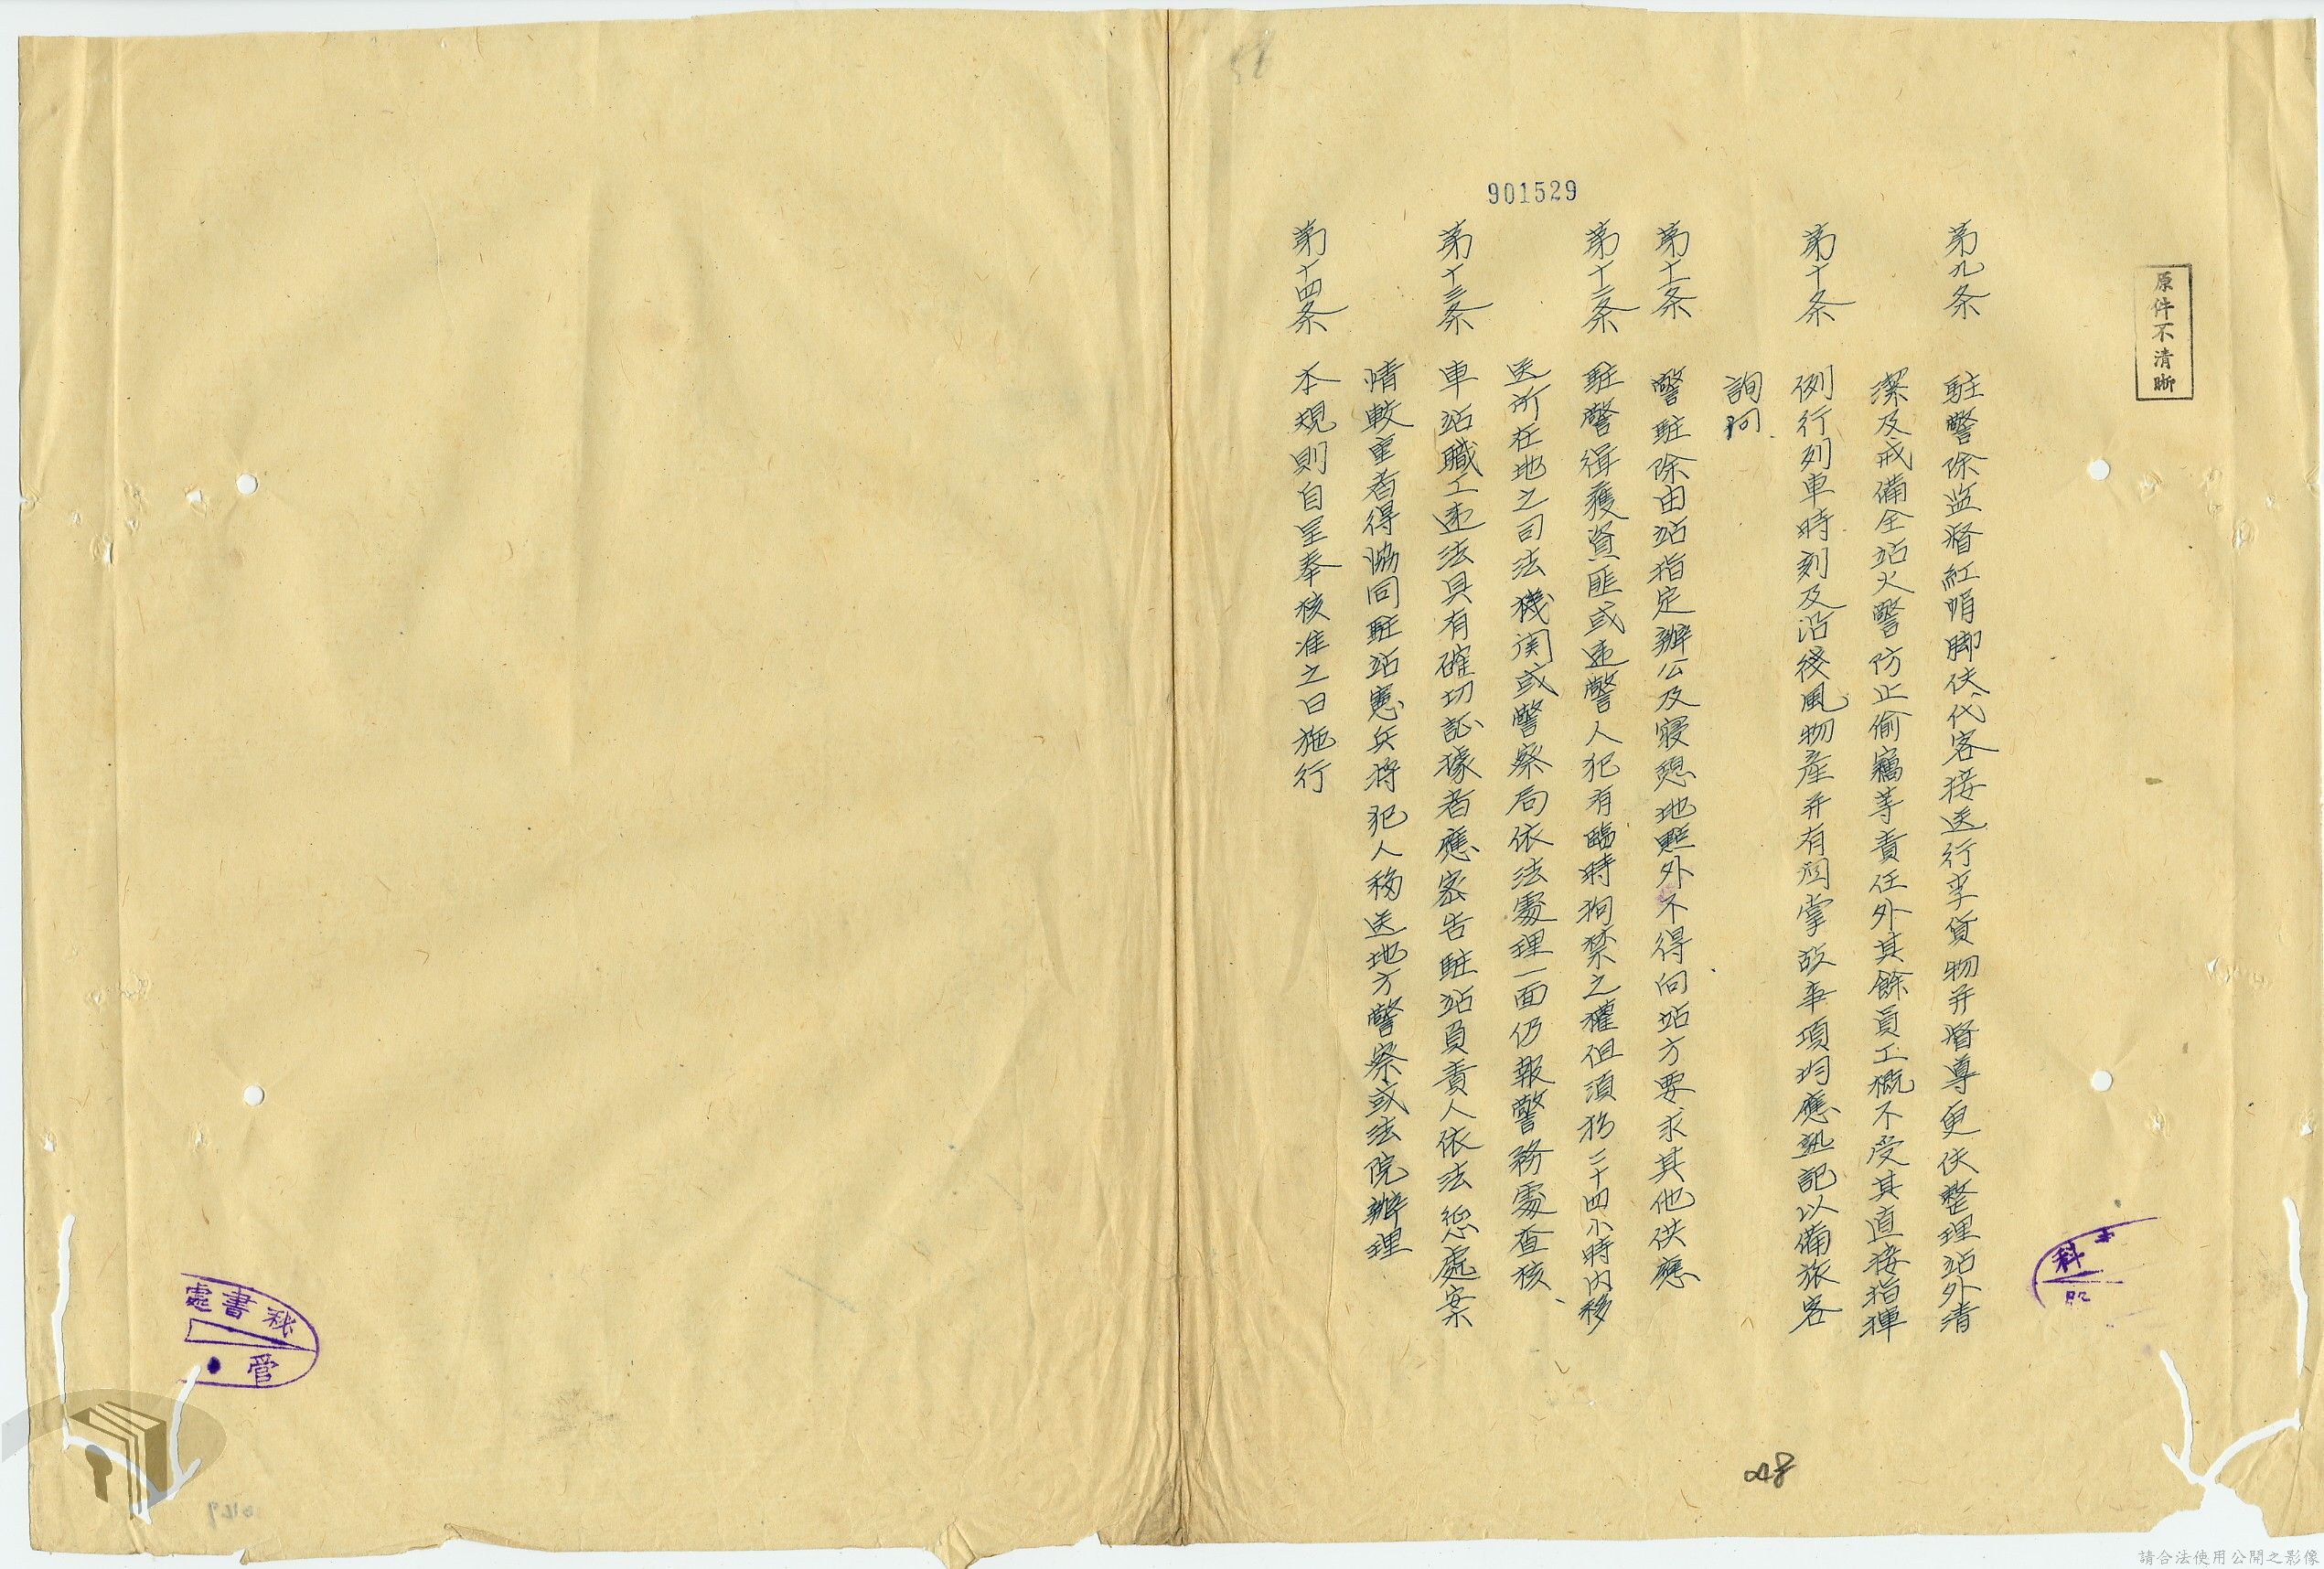 原件不清晰
901529
第九条 駐警除监督紅帽脚伕代客接送行李貨物并督導更伕整理站外清
潔及戒備全站火警防止偷竊等責任外其餘員工概不受其直接指揮
第十条 例行列車時刻及沿綫風物產并有関掌故事項均應熟記以備旅客
詢问
第十一条 警駐除由站指定辦公及寢憩地點外不得向站方要求其他供應
第十二条 駐警缉獲資匪或违警人犯有臨時拘禁之權但須於二十四小時內移
送所在地之司法機関或警察局依法處理一面仍報警務處查核
第十三条 車站職工违法具有確切証據者應密告駐站負責人依法惩處案
情較重者得協同駐站憲兵将犯人移送地方警察或法院辦理
第十四条 本規則自呈奉核准之日施行
048
科
秘書處
管
請合法使用公開之影像